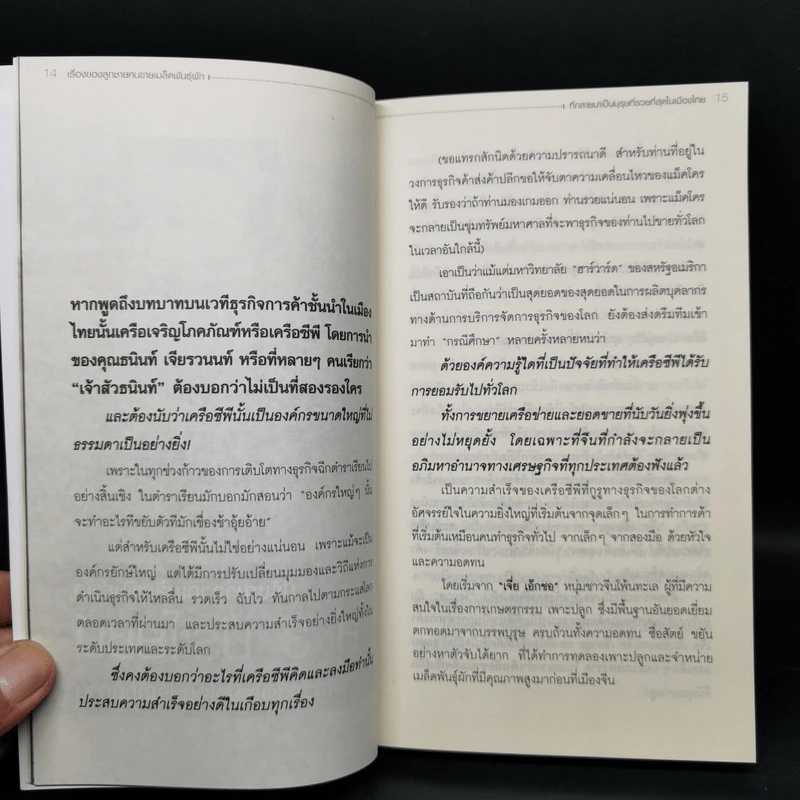 14 เรื่องของลูกชายคนขายเมล็ดพันธุ์ผัก
หากพูดถึงบทบาทบนเวทีธุรกิจการค้าชั้นนำในเมือง
ไทยนั้นเครือเจริญโภคภัณฑ์หรือเครือซีพี โดยการนำ
ของคุณธนินท์ เจียรวนนท์ หรือที่หลายๆ คนเรียกว่า
“เจ้าสัวธนินท์” ต้องบอกว่าไม่เป็นที่สองรองใคร
และต้องนับว่าเครือซีพีนั้นเป็นองค์กรขนาดใหญ่ที่ไม่
ธรรมดาเป็นอย่างยิ่ง!
เพราะในทุกช่วงก้าวของการเติบโตทางธุรกิจฉีกตำราเรียนไป
อย่างสิ้นเชิง ในตำราเรียนมักบอกมักสอนว่า “องค์กรใหญ่ๆ นั้น
จะทำอะไรทีขยับตัวทีมักเชื่องช้าอุ้ยอ้าย”
แต่สำหรับเครือซีพีนั้นไม่ใช่อย่างแน่นอน เพราะแม้จะเป็น
องค์กรยักษ์ใหญ่ แต่ได้มีการปรับเปลี่ยนมุมมองและวิถีแห่งการ
ดำเนินธุรกิจให้ไหลลื่น รวดเร็ว ฉับไว ทันกาลไปตามกระแสโลก
ตลอดเวลาที่ผ่านมา และประสบความสำเร็จอย่างยิ่งใหญ่ทั้งใน
ระดับประเทศและระดับโลก
ซึ่งคงต้องบอกว่าอะไรที่เครือซีพีคิดและลงมือทำนั้น
ประสบความสำเร็จอย่างดีในเกือบทุกเรื่อง
ที่กลายมาเป็นบุรุษที่รวยที่สุดในเมืองไทย 15
(ขอแทรกสักนิดด้วยความปรารถนาดี สำหรับท่านที่อยู่ใน
วงการธุรกิจค้าส่งค้าปลีกขอให้จับตาความเคลื่อนไหวของแม็คโคร
ให้ดี รับรองว่าถ้าท่านมองเกมออก ท่านรวยแน่นอน เพราะแม็คโคร
จะกลายเป็นขุมทรัพย์มหาศาลที่จะพาธุรกิจของท่านไปขายทั่วโลก
ในเวลาอันใกล้นี้)
เอาเป็นว่าแม้แต่มหาวิทยาลัย “ฮาร์วาร์ด” ของสหรัฐอเมริกา
เป็นสถาบันที่ถือกันว่าเป็นสุดยอดของสุดยอดในการผลิตบุคลากร
ทางด้านการบริการจัดการธุรกิจของโลก ยังต้องส่งดรีมทีมเข้า
มาทำ “กรณีศึกษา” หลายครั้งหลายหนว่า
ด้วยองค์ความรู้ใดที่เป็นปัจจัยที่ทำให้เครือซีพีได้รับ
การยอมรับไปทั่วโลก
ทั้งการขยายเครือข่ายและยอดขายที่นับวันยิ่งพุ่งขึ้น
อย่างไม่หยุดยั้ง โดยเฉพาะที่จีนที่กำลังจะกลายเป็น
อภิมหาอำนาจทางเศรษฐกิจที่ทุกประเทศต้องฟังแล้ว
เป็นความสำเร็จของเครือซีพีที่กูรูทางธุรกิจของโลกต่าง
อัศจรรย์ใจในความยิ่งใหญ่ที่เริ่มต้นจากจุดเล็กๆ ในการทำการค้า
ที่เริ่มต้นเหมือนคนทำธุรกิจทั่วไป จากเล็กๆ จากสองมือ ด้วยหัวใจ
และความอดทน
โดยเริ่มจาก “เจี่ย เอ็กชอ” หนุ่มชาวจีนโพ้นทะเล ผู้ที่มีความ
สนใจในเรื่องการเกษตรกรรม เพาะปลูก ซึ่งมีพื้นฐานอันยอดเยี่ยม
ตกทอดมาจากบรรพบุรุษ ครบถ้วนทั้งความอดทน ซื่อสัตย์ ขยัน
อย่างหาตัวจับได้ยาก ที่ได้ทำการทดลองเพาะปลูกและจำหน่าย
เมล็ดพันธุ์ผักที่มีคุณภาพสูงมาก่อนที่เมืองจีน